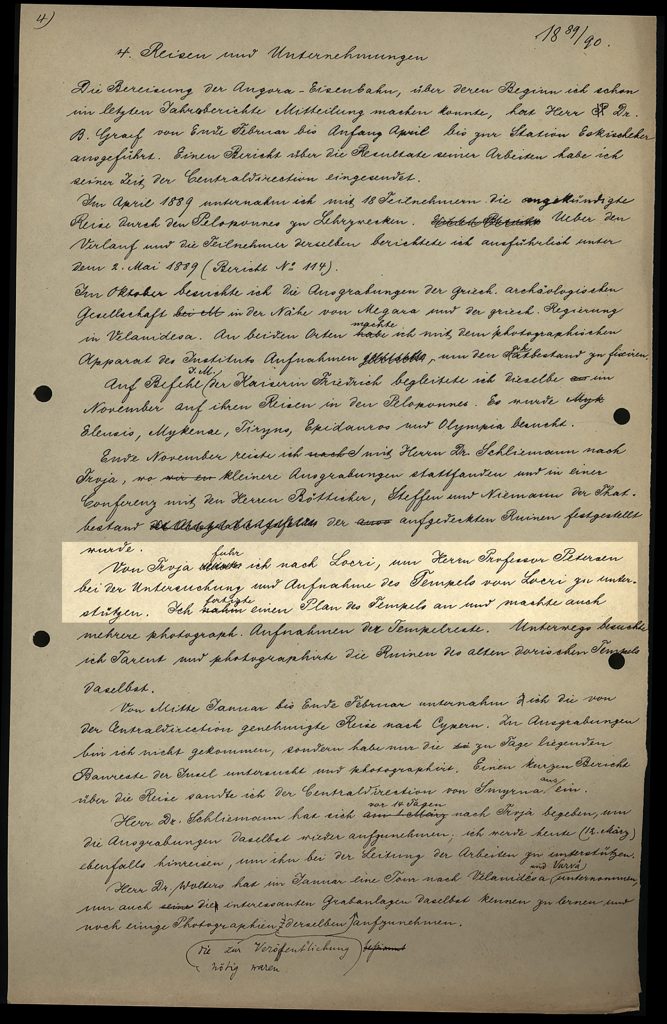 4)
18 89/90.
4. Reisen und Unternehmungen
Die Bereisung der Angora-Eisenbahn, über deren Beginn ich schon
im letzten Jahresberichte Mitteilung machen konnte, hat Herr Dr.
B. Graef von Ende Februar bis Anfang April bis zur Station Eskischeher
ausgeführt. Einen Bericht über die Resultate seiner Arbeiten habe ich
seiner Zeit der Centraldirection eingesendet.
Im April 1889 unternahm ich mit 18 Teilnehmern die angekündigte
Reise durch den Peloponnes zu Lehrzwecken. Ueber den
Verlauf und die Teilnehmer derselben berichtete ich ausführlich unter
dem 2. Mai 1889 (Bericht No 114).
Im Oktober besuchte ich die Ausgrabungen der Griech. archäologischen
Gesellschaft bei M in der Nähe von Megara und der griech. Regierung
in Velanidesa. An beiden Orten habe machte ich mit dem photographischen
Apparat des Instituts Aufnahmen, um den Thatbestand zu fixiren.
Auf Befehl I. M. der Kaiserin Friedrich begleitete ich dieselbe im
November auf ihren Reisen in den Peloponnes. Es wurde Myk
Eleusis, Mykenae, Tiryns, Epidauros und Olympia besucht.
Ende November reiste ich nach mit Herrn Dr. Schliemann nach
Troja, wo wir kleinere Ausgrabungen stattfanden und in einer
Conferenz mit den Herren Bötticher, Steffen und Niemann der That-
bestand der aufgedeckten Ruinen festgestellt
wurde.
Von Troja fuhr ich nach Locri, um Herrn Professor Petersen
bei der Untersuchung und Aufnahme des Tempels von Locri zu unter-
stützen. Ich nahm fertigte einen Plan des Tempels an und machte auch
mehrere photograph. Aufnahmen der Tempelreste. Unterwegs besuchte
ich Tarent und photographirte die Ruinen des alten dorischen Tempels
daselbst.
Von Mitte Januar bis Ende Februar unternahm ich die von
der Centraldirection genehmigte Reise nach Cypern. Zu Ausgrabungen
bin ich nicht gekommen, sondern habe nur die zu Tage liegenden
Baureste der Insel untersucht und photographirt. Einen kurzen Bericht
über die Reise sandte ich der Centraldirection von Smyrna aus ein.
Herr Dr. Schliemann hat sich am 1 März vor 14 Tagen nach Troja begeben, um
die Ausgrabungen daselbst wieder aufzunehmen; ich werde heute (12. März)
ebenfalls hinreisen, um ihn bei der Leitung der Arbeiten zu unterstützen.
Herr Dr. Wolters hat im Januar eine Tour nach Velanidesa und Varvá unternommen,
um auch seine die interessanten Grabanlagen daselbst kennen zu lernen und
noch einige Photographien derselben aufzunehmen.
die zur Veröffentlichung
nötig waren